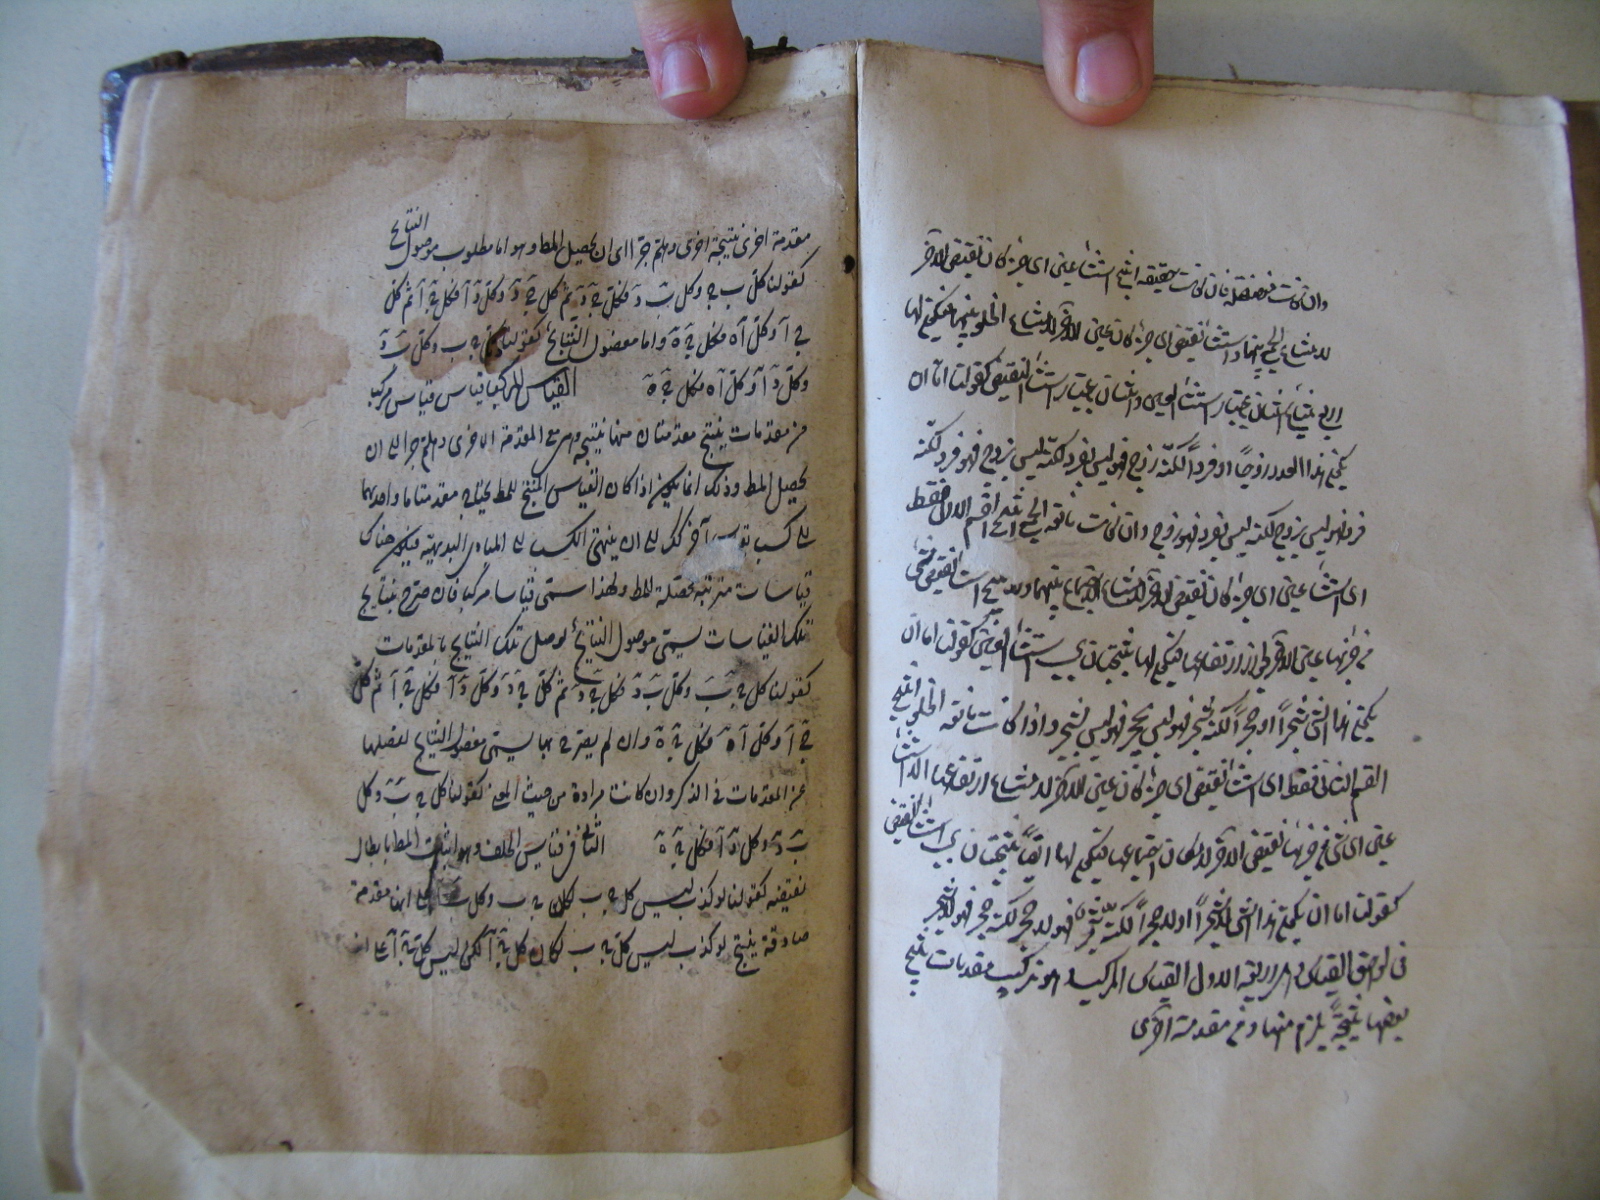 وان كانت منفصلة فان كانت حقيقية انتج استثناء عين اي جزء كان نقيض الآخر
لامتناع الجمع بينهما واستثناء نقيض اي جزء كان عين الآخر لامتناع الخلو بينهما فيكون لها
اربع نتايج اثنان باعتبار استثناء العين واثنان باعتبار استثناء النقيض كقولنا اما ان
يكون هذا العدد زوجًا او فردًا لكنه زوج فهو ليس بفرد لكنه ليس بزوج فهو فرد لكنه
فرد فهو ليس بزوج لكنه ليس بفرد فهو زوج وان كانت مانعة الجمع انتج القسم الاول فقط
اي استثناء عين اي جزء كان نقيض الآخر لامتناع الاجتماع بينهما ولا ينتج استثناء نقيض شيء
من جزئيها عين الآخر لجواز ارتفاعهما فيكون لها نتيجتان بحسب استثناء العين كقولنا اما ان
يكون هذا الشيء شجرًا او حجرًا لكنه شجر فهو ليس بحجر لكنه حجر فهو ليس بشجر واذا كانت مانعة الخلو انتج
القسم الثاني فقط اي استثناء نقيض اي جزء كان عين الآخر لامتناع ارتفاعهما لا استثناء
عين اي شيء من جزئيها نقيض الآخر لامكان اجتماعهما فيكون لها ايضًا نتيجتان بحسب استثناء النقيض
كقولنا اما ان يكون هذا الشيء لا شجرًا او لا حجرًا لكنه شجر فهو لا حجر لكنه حجر فهو لا شجر
في لواحق القياس وهي اربعة الاول القياس المركب وهو تركيب مقدمات ينتج
بعضها نتيجةً يلزم منها ومن مقدمة اخرى
مقدمة اخرى نتيجة اخرى وهلم جرّا الى ان يحصل المط وهو اما مطلوب موصول النتايج
كقولنا كل ج ب وكل ب د فكل ج د ثم كل ج د وكل د آ فكل ج آ ثم كل
ج آ وكل آ ه فكل ج ه واما مفصول النتايج كقولنا كل ج ب وكل ب د
وكل د آ وكل آ ه فكل ج ه القياس المركب قياس مركب
من مقدمات ينتج مقدمتان منها نتيجة وهي مع المقدمة الاخرى وهلم جرا الى ان
يحصل المط وذلك انما يكون اذا كان القياس المنتج للمط يحتاج مقدمتاه او احديهما
الى كسب بقياس آخر كذلك الى ان ينتهي الكسب الى المبادي البديهية فيكون هناك
قياسات مترتبة محصلة للمط ولهذا سمي قياسا مركبا فان صرح بنتايج
تلك القياسات يسمى موصول النتايج لوصل تلك النتايج بالمقدمات
كقولنا كل ج ب وكل ب د فكل ج د ثم كل ج د وكل د آ فكل ج آ ثم كل
ج آ وكل آ ه فكل ج ه وان لم يصرح بها يسمى مفصول النتايج لفصلها
عن المقدمات في الذكر وان كانت مرادة من حيث المعنى كقولنا كل ج ب وكل
ب د وكل د آ فكل ج ه الثاني قياس الخلف وهو اثبات المط بابطال
نقيضه كقولنا لو كذب ليس كل ج ب لكان كل ج ب وكل ب آ على انها مقدمة
صادقة ينتج لو كذب ليس كل ج ب لكان كل ج آ لكن ليس كل ج آ على انه